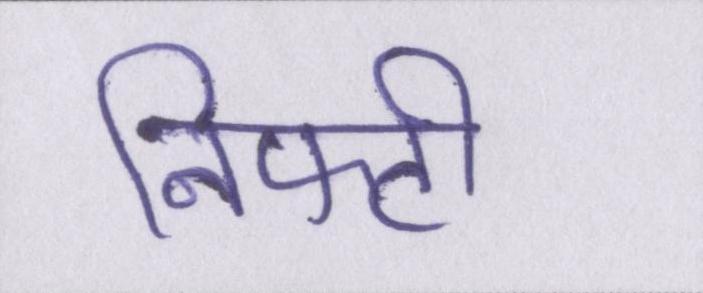 निफ्टी